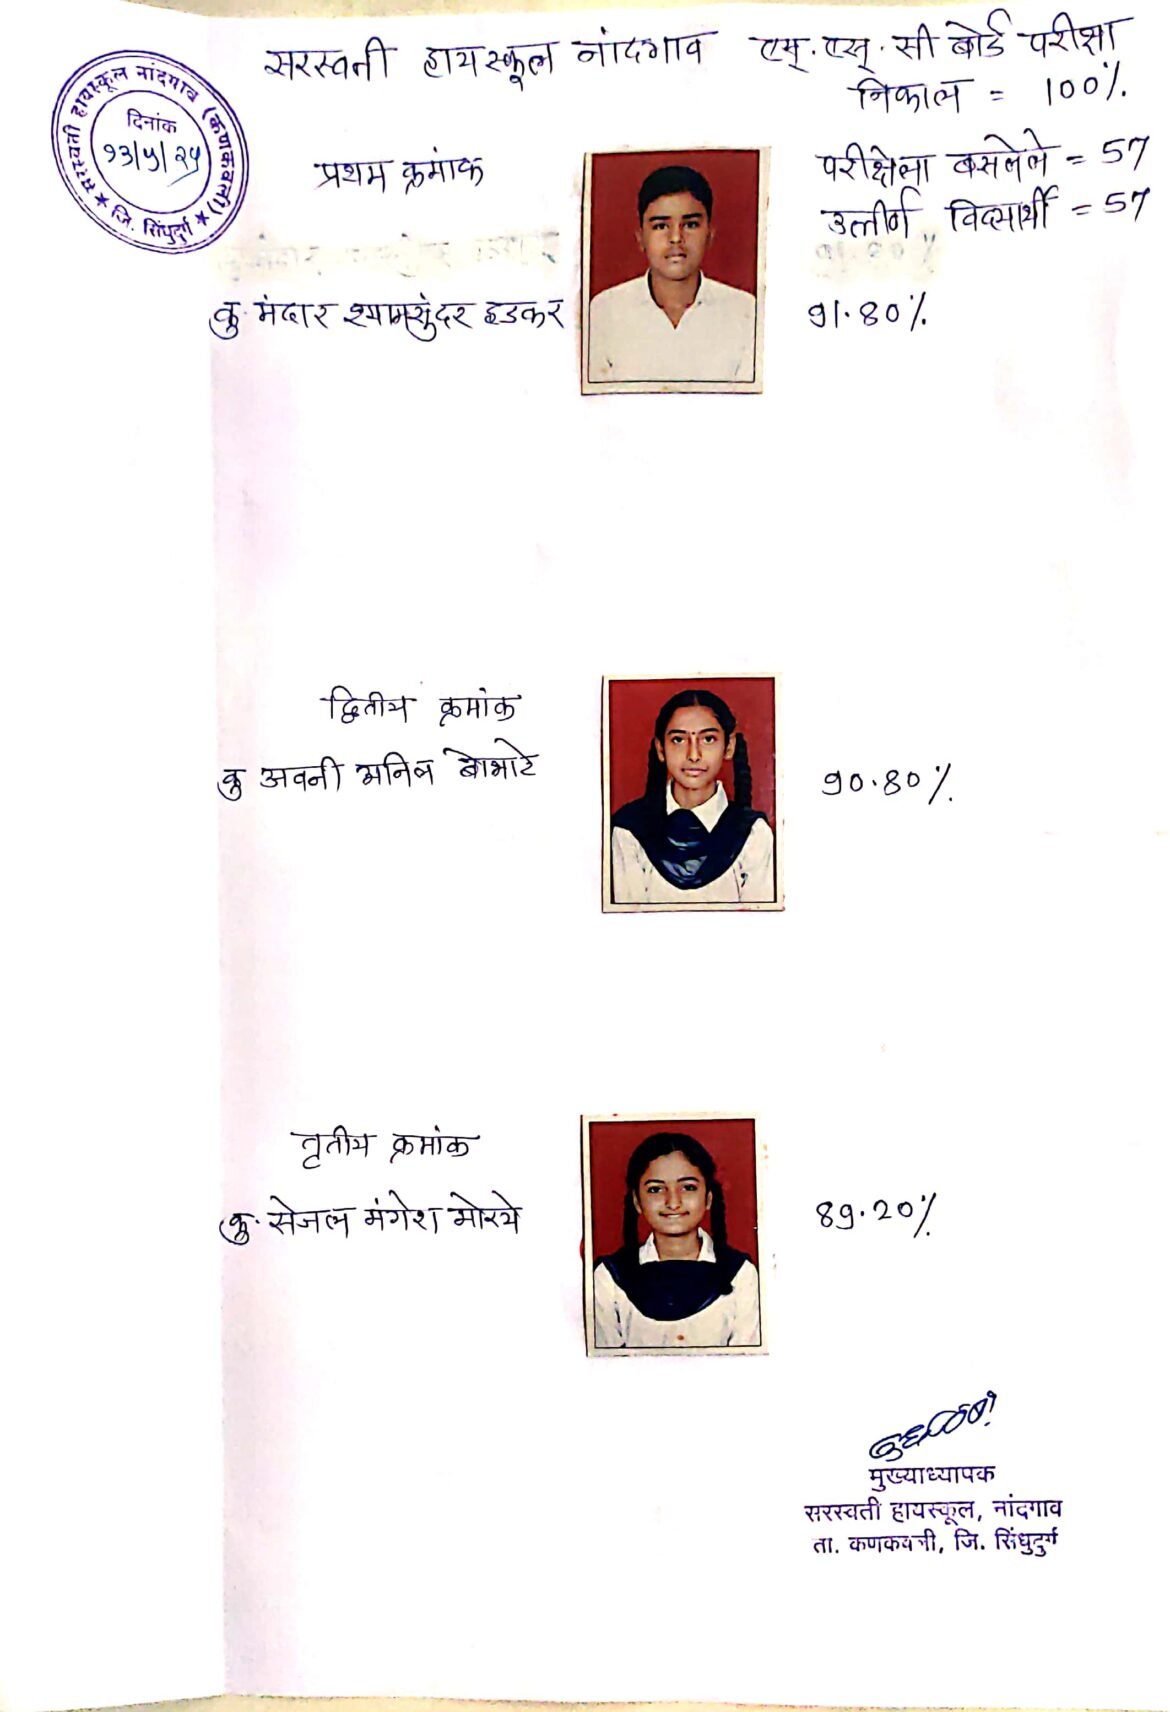 सरस्वती हायस्कूल नांदगाव एस्.एस्.सी बोर्ड परीक्षा
निकाल = 100%.
सरस्वती हायस्कूल नांदगाव (कणकवली)
★ जि. सिंधुदुर्ग ★
दिनांक
१३/५/२५
प्रथम क्रमांक
परीक्षेला बसलेले = 57
उत्तीर्ण विद्यार्थी = 57
कु. मंदार श्यामसुंदर हडकर
91.80%.
द्वितीय क्रमांक
कु अवनी अनिल बोभाटे
90.80%.
तृतीय क्रमांक
कु. सेजल मंगेश मोरये
89.20%
मुख्याध्यापक
सरस्वती हायस्कूल, नांदगाव
ता. कणकवली, जि. सिंधुदुर्ग